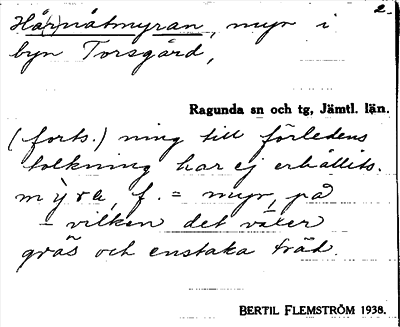 2.
Hår(r)nåtmyran, myr i
byn Torsgård,
Ragunda sn och tg, Jämtl. län.
(forts.) ning till förledens
tolkning har ej erhållits.
myra, f. = myr, på
– vilken det växer
gräs och enstaka träd.
BERTIL FLEMSTRÖM 1938.